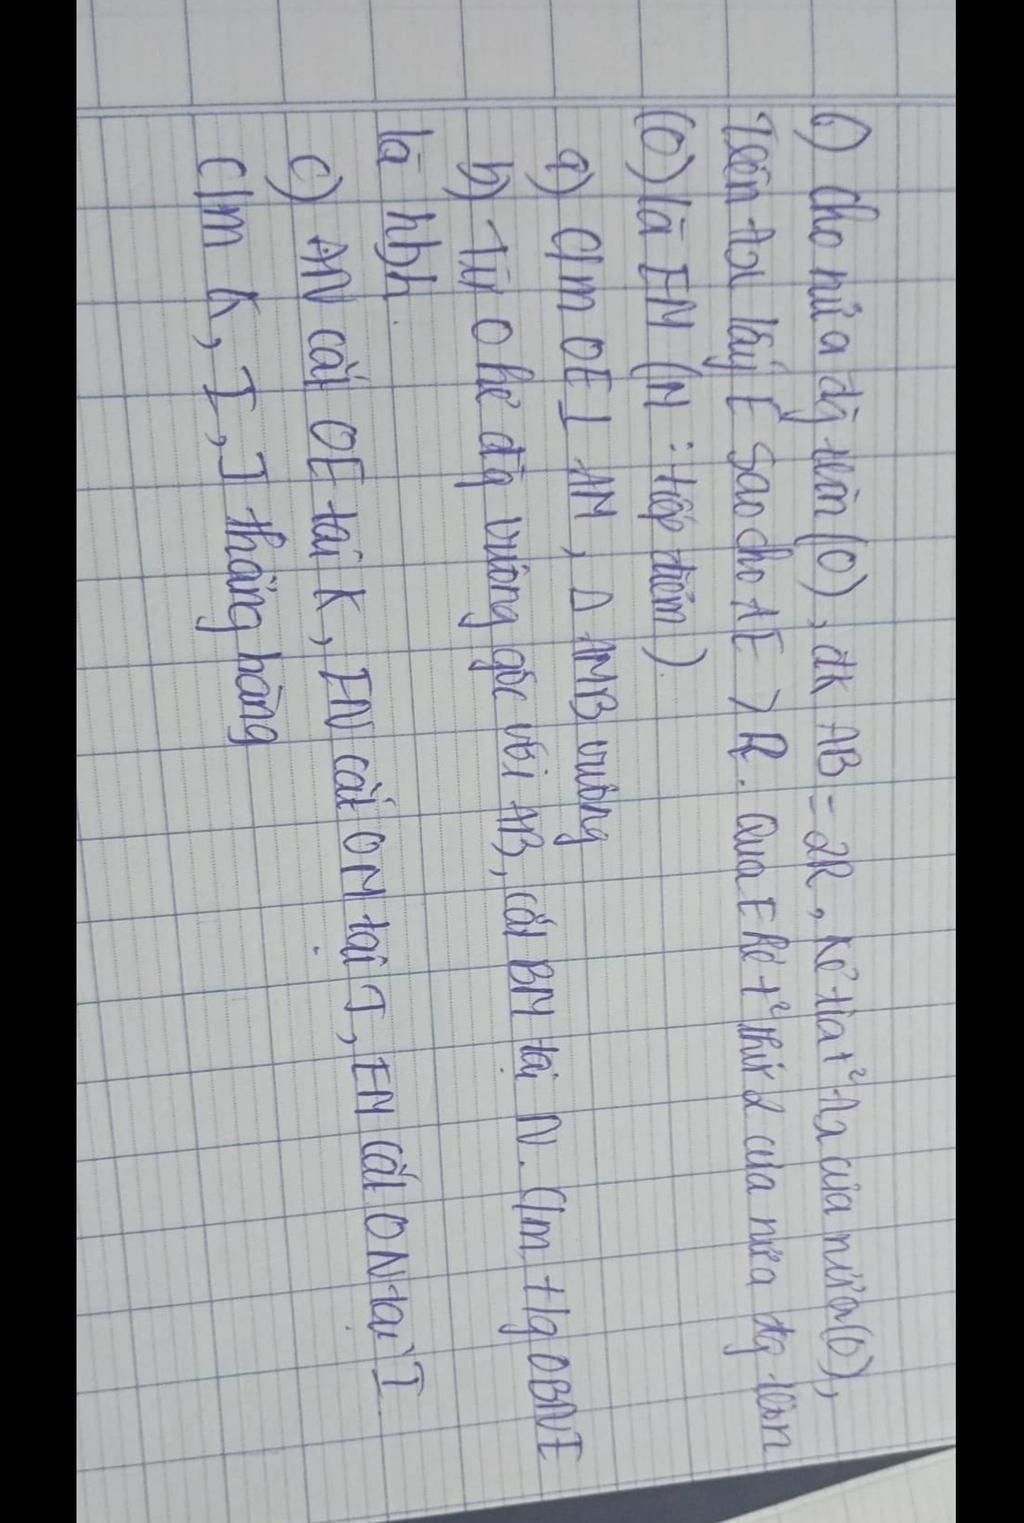 6) Cho nửa đg tròn (O), đk AB = 2R, kẻ tia t² Ax của nửa (O),
Trên Ax lấy E sao cho AE > R. Qua E kẻ t² thứ 2 của nửa đg tròn
(O) là EM (M : tiếp điểm).
a) C/m OE ⊥ AM, Δ AMB vuông
b) Từ O kẻ đg vuông góc với AB, cắt BM tại N. C/m t/g OBNE
là hbh.
c) AN cắt OE tại K, EN cắt OM tại J, EM cắt ON tại I
C/m K, I, J thẳng hàng